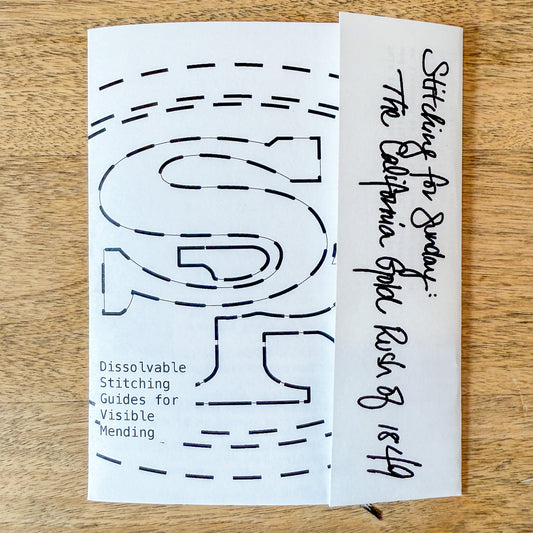 Stitching for Sunday:
The California Gold Rush of 1849
SF
Dissolvable
Stitching
Guides for
Visible
Mending